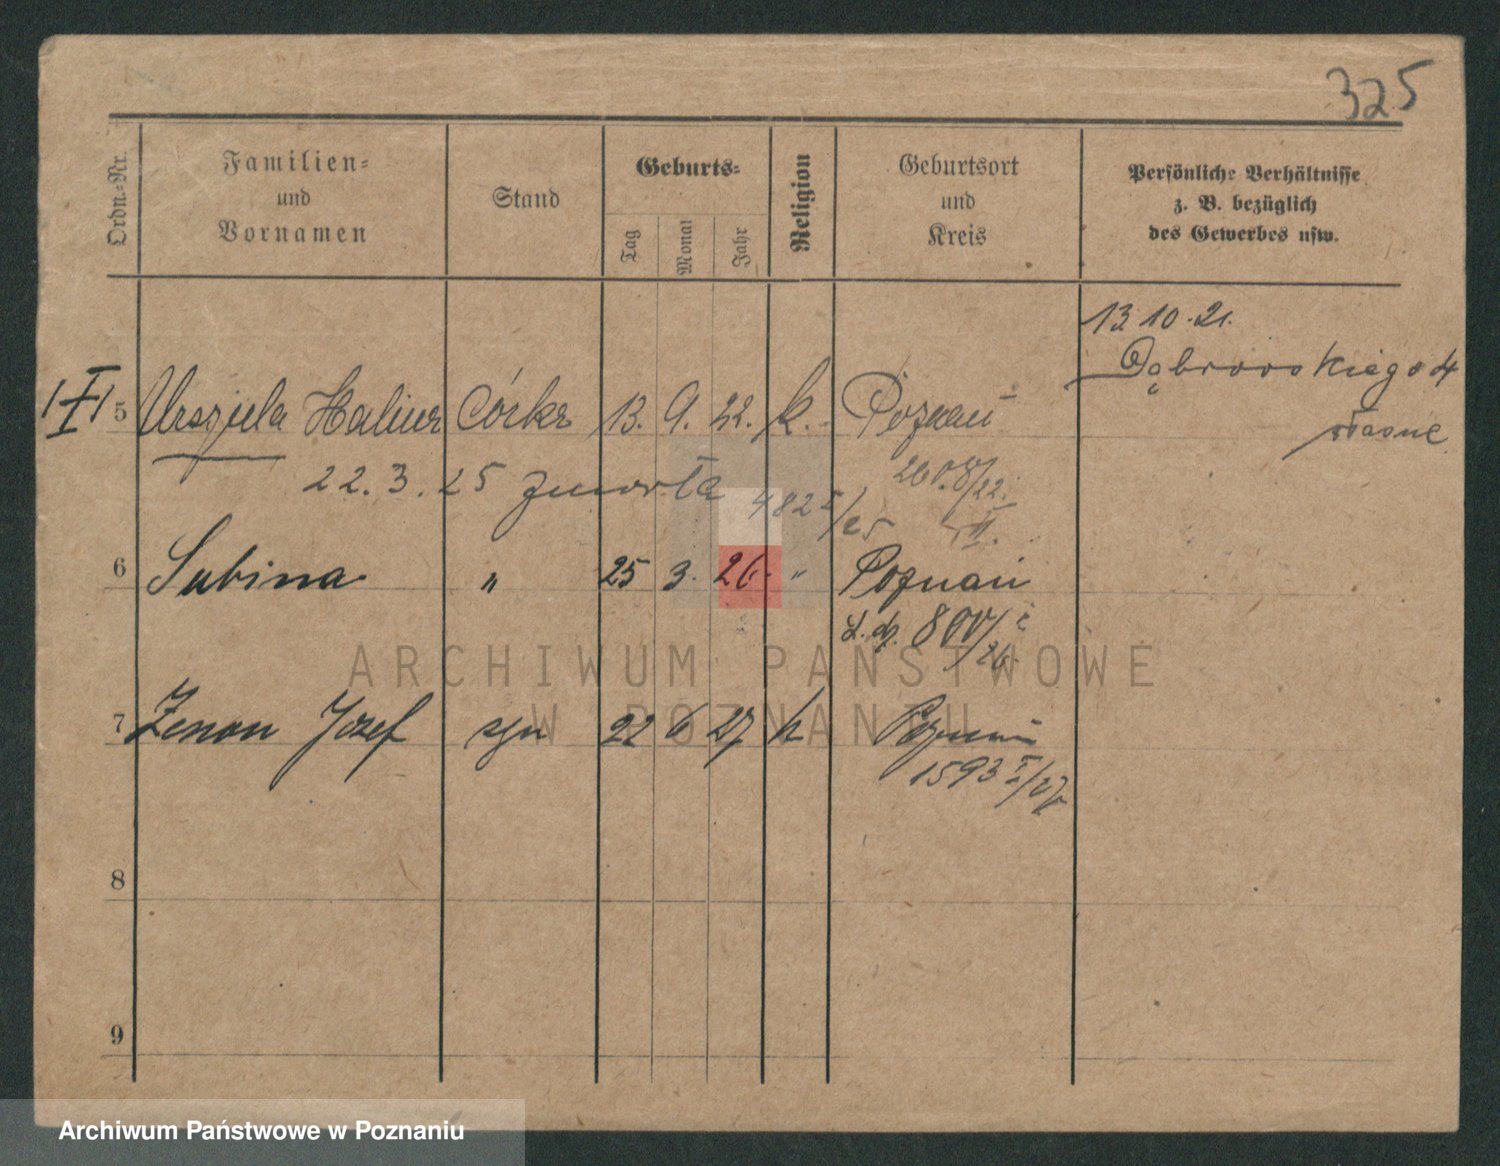 325
Ordn.-Nr.
Familien-
und
Vornamen
Stand
Geburts-
Tag
Monat
Jahr
Religion
Geburtsort
und
Kreis
Persönliche Verhältnisse
z. B. bezüglich
des Gewerbes usw.
13 10. 21.
Dąbrowskiego 4
własne
5 Urszula Halina córka 13. 9. 22. k. Poznań
22. 3. 25 zmarła 482 I/25
6 Sabina " 25 3. 26. " Poznań
L. dz. 800/26
7 Zenon Józef syn 22 6 27 k Poznań
1593 I/27
8
9
ARCHIWUM PAŃSTWOWE
W POZNANIU
Archiwum Państwowe w Poznaniu